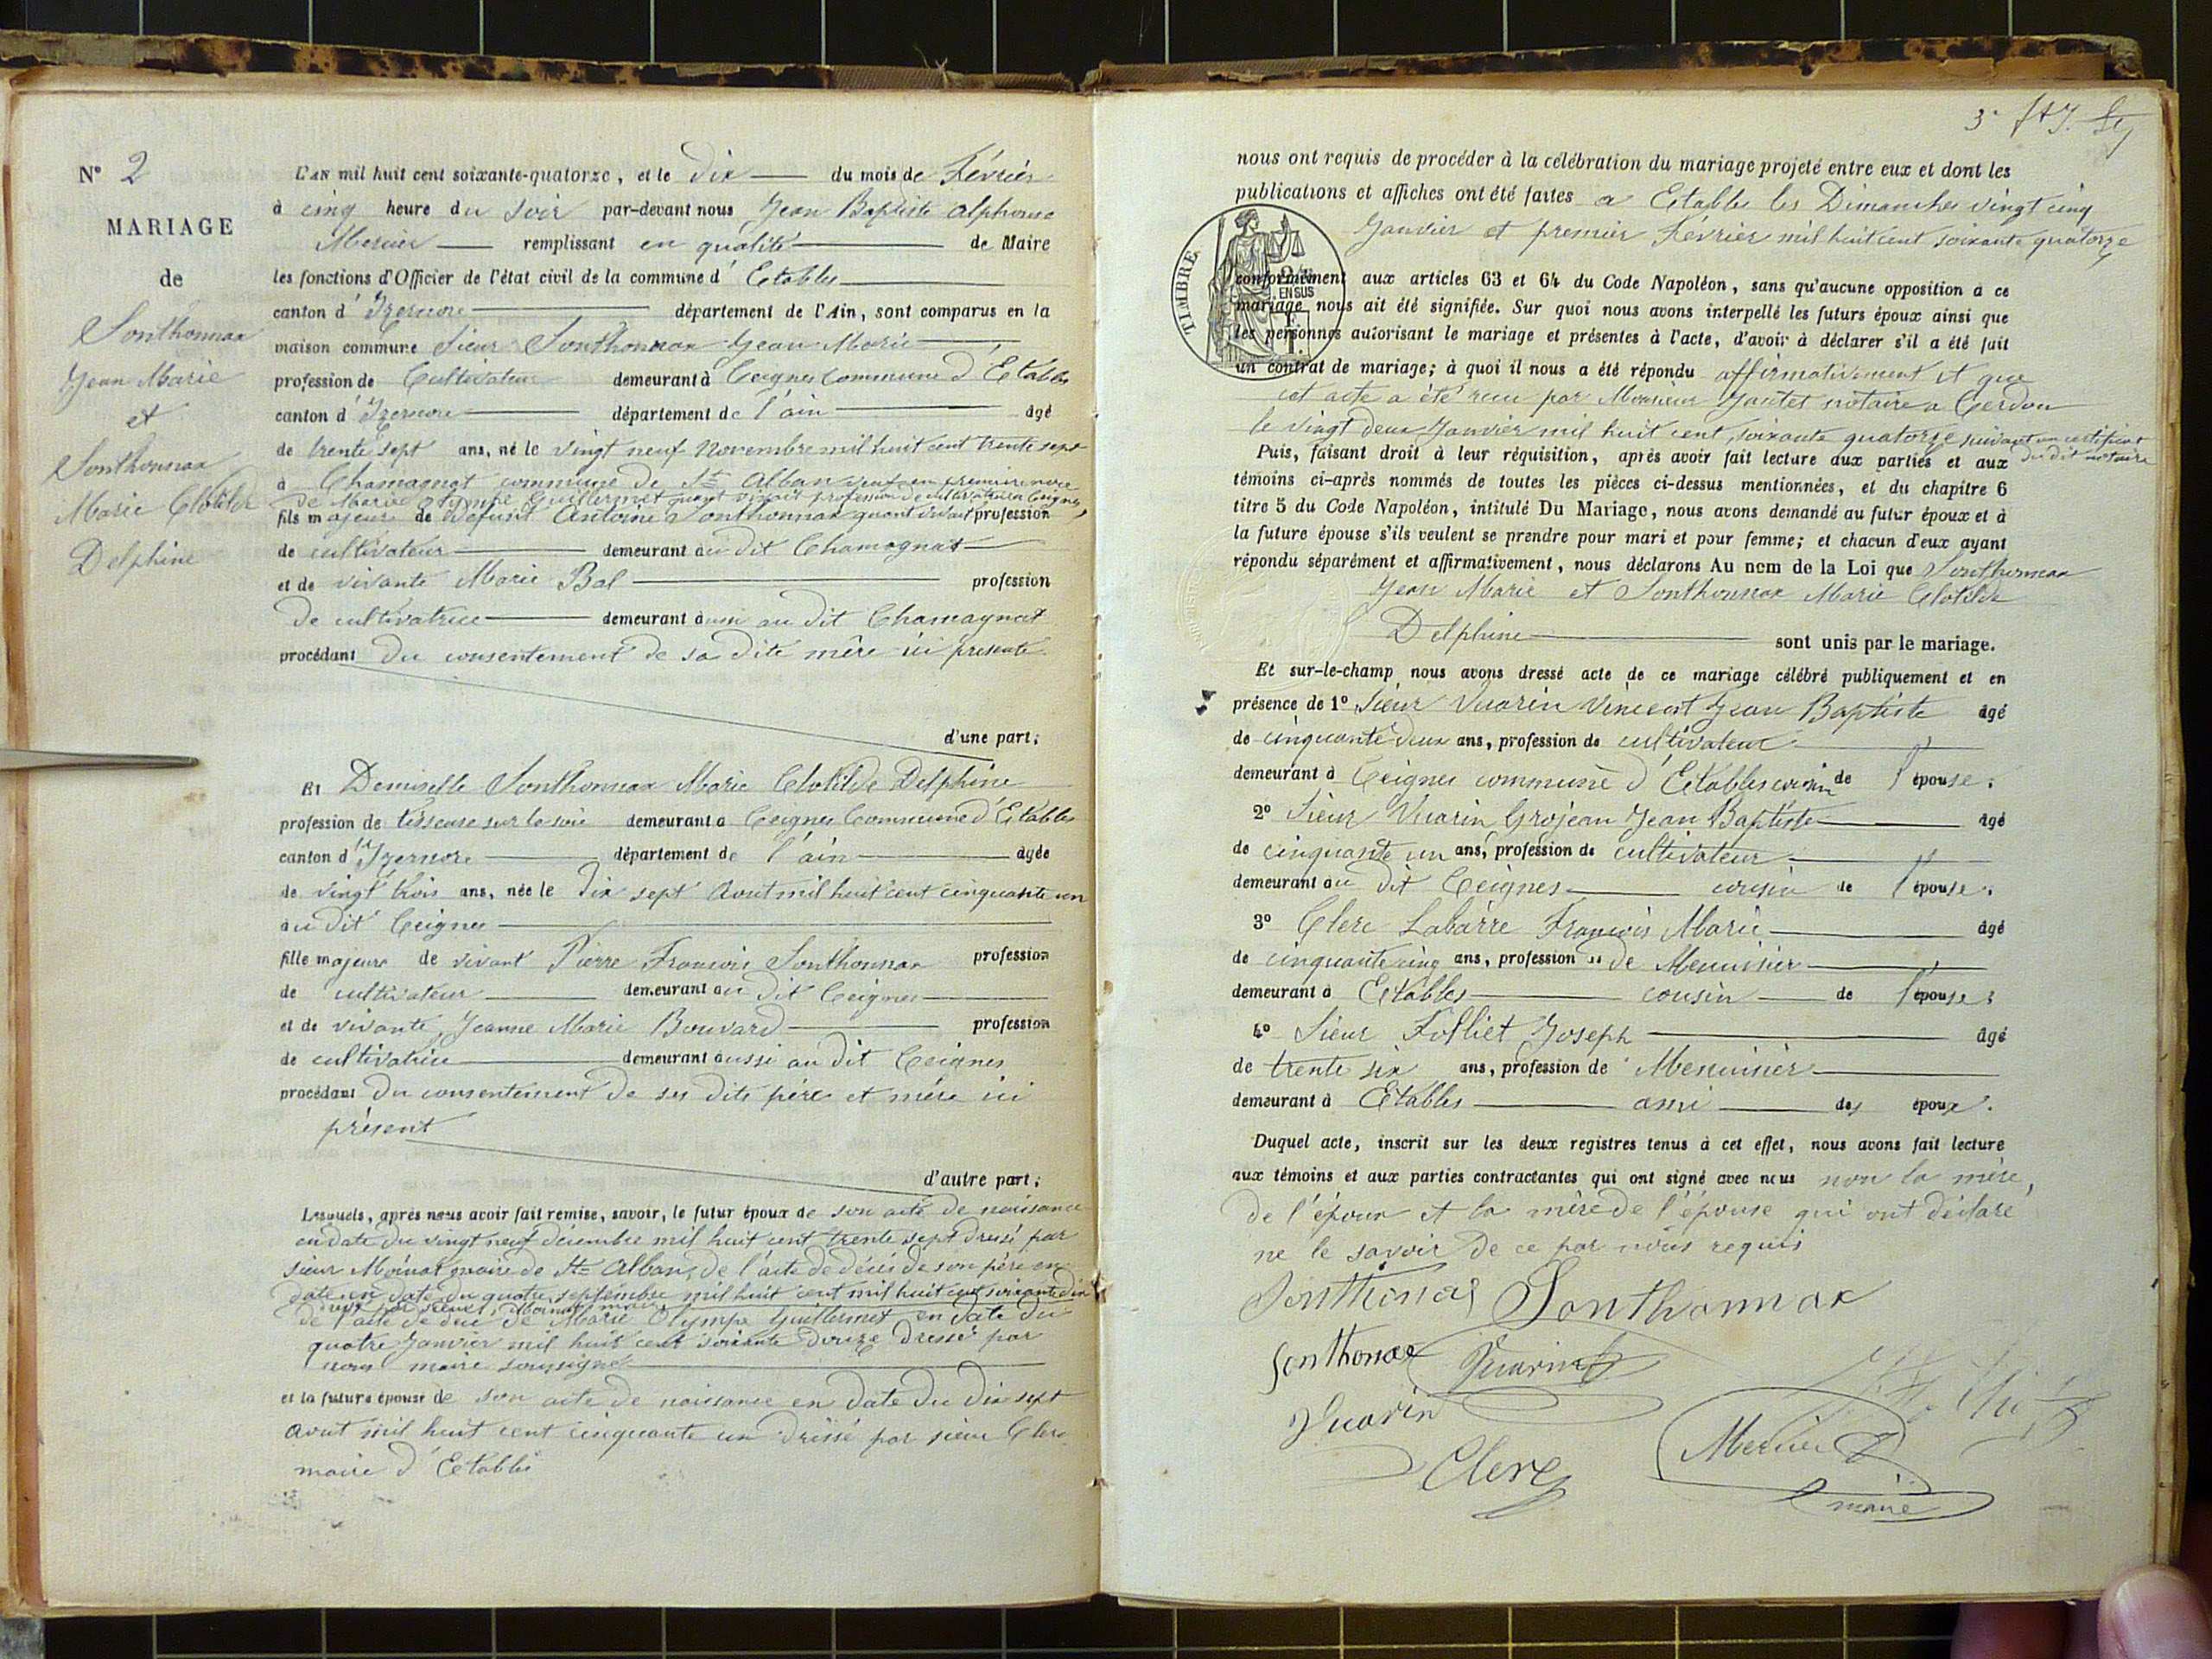 N° 2
MARIAGE
de
Sonthonnax
Jean Marie
et
Sonthonnax
Marie Clotilde
Delphine
L'AN mil huit cent soixante-quatorze, et le dix du mois de Février
à cinq heure du soir par-devant nous Jean Baptiste Alphonse
Mercier remplissant en qualité de Maire
les fonctions d'Officier de l'état civil de la commune d' Etables
canton d' Izernore département de l'Ain, sont comparus en la
maison commune Sieur Sonthonnax Jean Marie
profession de Cultivateur demeurant à Ceignes Commune d'Etables
canton d' Izernore département de l'ain âgé
de trente sept ans, né le vingt neuf Novembre mil huit cent trente sept
à Chamagnat commune de St Alban veuf en première noce
de Marie Olympe Guillermet quant vivait profession de cultivatrice a Ceignes,
fils majeur de défunt Antoine Sonthonnax quant vivait profession
de cultivateur demeurant au dit Chamagnat
et de vivante Marie Bal profession
de cultivatrice demeurant aussi au dit Chamagnat
procédant du consentement de sa dite mère ici présente
d'une part;
Et Demiselle Sonthonnax Marie Clotilde Delphine
profession de tisseuse sur la soie demeurant a Ceignes Commune d'Etables
canton d' Izernore département de l'ain âgée
de vingt trois ans, née le dix sept Aout mil huit cent cinquante un
au dit Ceignes
fille majeure de vivant Pierre François Sonthonnax profession
de cultivateur demeurant au dit Ceignes
et de vivante Jeanne Marie Bouvard profession
de cultivatrice demeurant aussi au dit Ceignes
procédant du consentement de ses dits père et mère ici
présent
d'autre part;
Lesquels, après nous avoir fait remise, savoir, le futur époux de son acte de naissance
en date du vingt neuf décembre mil huit cent trente sept dressé par
sieur Moinat maire de St Alban, de l'acte de décès de son père en
date en date du quatre septembre mil huit cent mil huit cent soixante dix
dressé par sieur Moinat maire
de l'acte de décè de Marie Olympe Guillermet en date du
quatre Janvier mil huit cent soixante douze dressé par
nous maire soussigné
et la future épouse de son acte de naissance en date du dix sept
Aout mil huit cent cinquante un dressé par sieur Clerc
maire d'Etables
3
nous ont requis de procéder à la célébration du mariage projeté entre eux et dont les
publications et affiches ont été faites a Etables les Dimanches vingt cinq
Janvier et premier Février mil huit cent soixante quatorze
TIMBRE
EN SUS
conformément aux articles 63 et 64 du Code Napoléon, sans qu'aucune opposition à ce
mariage nous ait été signifiée. Sur quoi nous avons interpellé les futurs époux ainsi que
les personnes autorisant le mariage et présentes à l'acte, d'avoir à déclarer s'il a été fait
un contrat de mariage; à quoi il nous a été répondu affirmativement et que
cet acte a été reçu par Monsieur Jantet notaire a Cerdon
le vingt deux Janvier mil huit cent soixante quatorze suivant un certificat
du dit notaire
Puis, faisant droit à leur réquisition, après avoir fait lecture aux parties et aux
témoins ci-après nommés de toutes les pièces ci-dessus mentionnées, et du chapitre 6
titre 5 du Code Napoléon, intitulé Du Mariage, nous avons demandé au futur époux et à
la future épouse s'ils veulent se prendre pour mari et pour femme; et chacun d'eux ayant
répondu séparément et affirmativement, nous déclarons Au nom de la Loi que Sonthonnax
Jean Marie et Sonthonnax Marie Clotilde
Delphine sont unis par le mariage.
Et sur-le-champ nous avons dressé acte de ce mariage célébré publiquement et en
présence de 1° Sieur Vuarin Vincent Jean Baptiste âgé
de cinquante deux ans, profession de cultivateur
demeurant à Ceignes commune d'Etables cousin de l'épouse;
2° Sieur Vuarin Grojean Jean Baptiste âgé
de cinquante un ans, profession de cultivateur
demeurant au dit Ceignes cousin de l'épouse;
3° Clerc Labarre François Marie âgé
de cinquante cinq ans, profession de Menuisier
demeurant à Etables cousin de l'épouse;
4° Sieur Folliet Joseph âgé
de trente six ans, profession de Menuisier
demeurant à Etables ami des époux.
Duquel acte, inscrit sur les deux registres tenus à cet effet, nous avons fait lecture
aux témoins et aux parties contractantes qui ont signé avec nous non la mère,
de l'époux et la mère de l'épouse qui ont déclaré
ne le savoir de ce par nous requis
Sonthonax Sonthonnax
Sonthonax Vuarin
Vuarin
Clerc
Mercier
maire